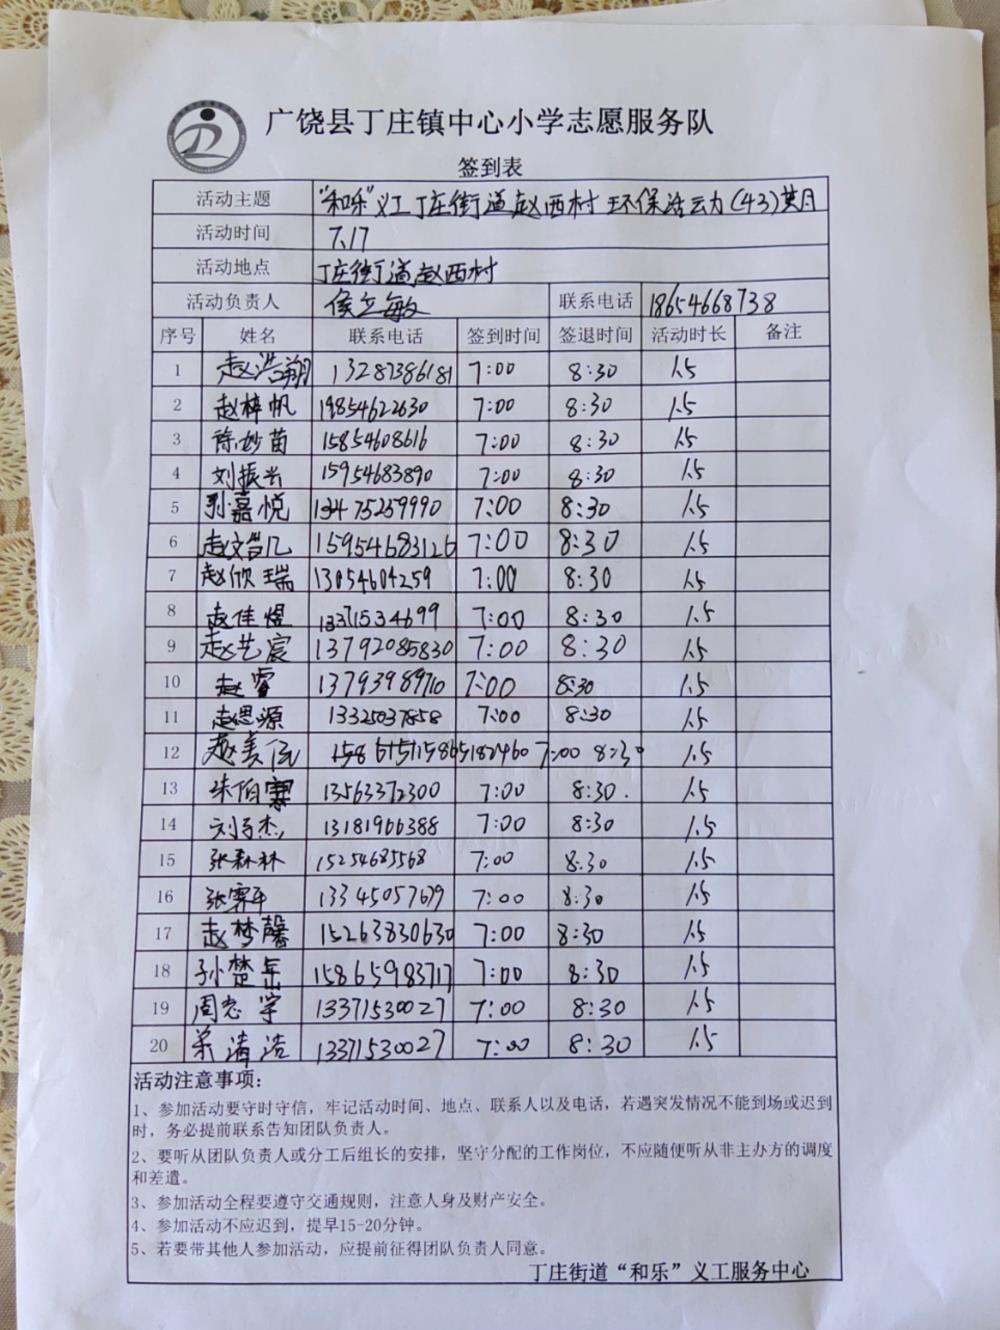 广饶县丁庄镇中心小学志愿服务队
签到表
活动主题 "和乐"义工丁庄街道赵西村环保活动(43)期
活动时间 7.17
活动地点 丁庄街道赵西村
活动负责人 侯立敏 联系电话 18654668738
序号 姓名 联系电话 签到时间 签退时间 活动时长 备注
1 赵浩翔 13287386181 7:00 8:30 1.5
2 赵梓帆 19854622630 7:00 8:30 1.5
3 徐妙苗 15854608616 7:00 8:30 1.5
4 刘振兴 15954683890 7:00 8:30 1.5
5 孙嘉悦 13475259990 7:00 8:30 1.5
6 赵 15954683126 7:00 8:30 1.5
7 赵欣瑞 13054604259 7:00 8:30 1.5
8 赵佳煜 13371534699 7:00 8:30 1.5
9 赵艺宸 13792085830 7:00 8:30 1.5
10 赵睿 13793989710 7:00 8:30 1.5
11 赵思源 13325037858 7:00 8:30 1.5
12 赵 7:00 8:30 1.5
13 朱伯 13563372300 7:00 8:30. 1.5
14 刘 13181966388 7:00 8:30 1.5
15 张森林 15254685568 7:00 8:30 1.5
16 张 13345057679 7:00 8:30 1.5
17 赵梦馨 15263830630 7:00 8:30 1.5
18 孙楚岳 15865983717 7:00 8:30 1.5
19 周志宇 13371530027 7:00 8:30 1.5
20 清浩 13371530027 7:00 8:30 1.5
活动注意事项:
1、参加活动要守时守信，牢记活动时间、地点、联系人以及电话，若遇突发情况不能到场或迟到
时，务必提前联系告知团队负责人。
2、要听从团队负责人或分工后组长的安排，坚守分配的工作岗位，不应随便听从非主办方的调度
和差遣。
3、参加活动全程要遵守交通规则，注意人身及财产安全。
4、参加活动不应迟到，提早15-20分钟。
5、若要带其他人参加活动，应提前征得团队负责人同意。
丁庄街道“和乐”义工服务中心